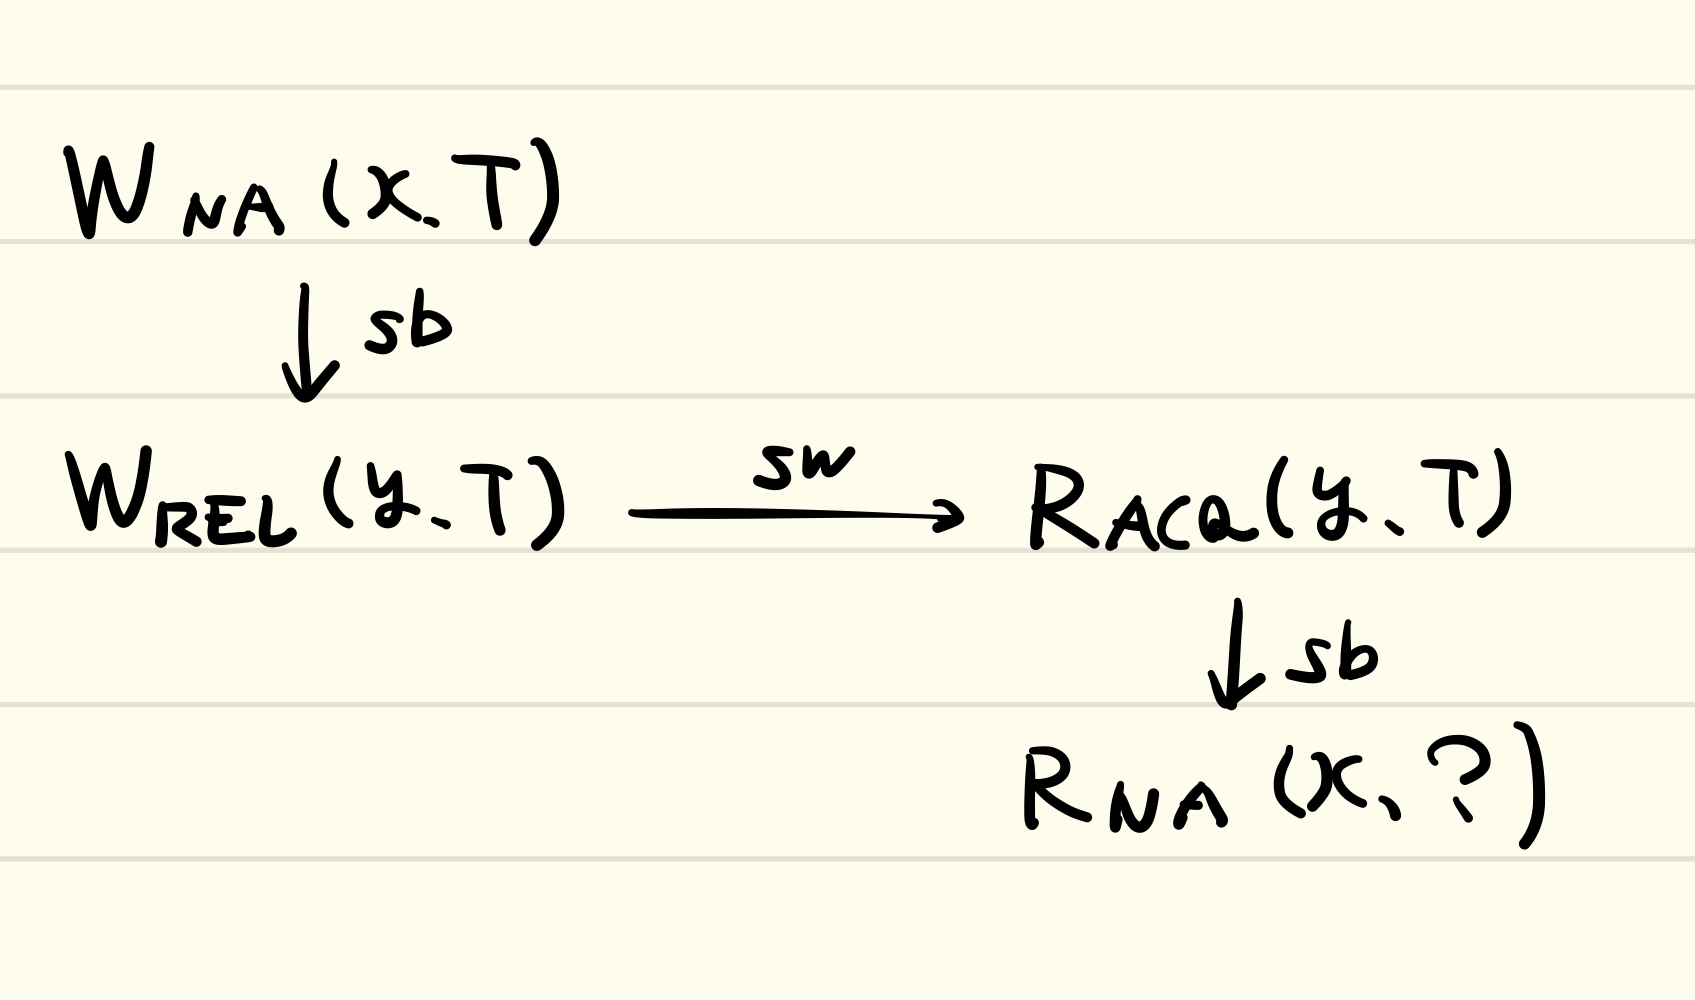 W NA (x, T)
↓ sb
W REL (y, T) sw → R ACQ (y, T)
↓ sb
R NA (x, ?)